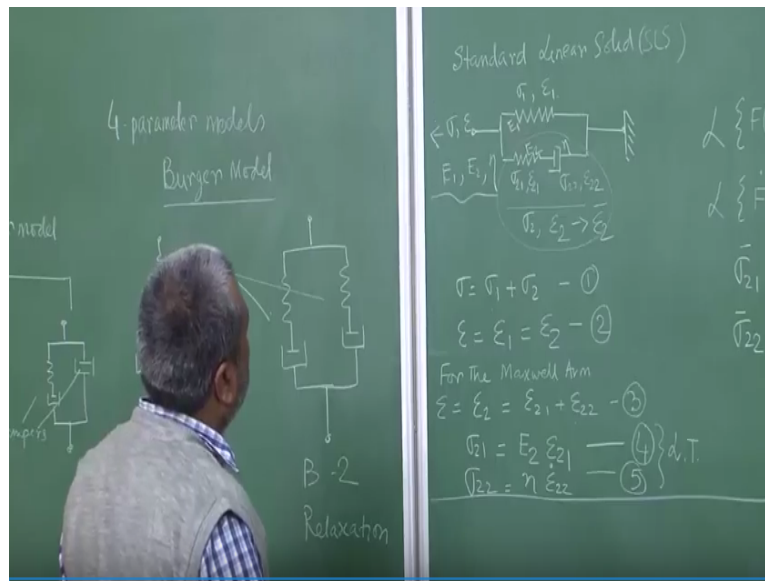 4-parameter models
Burger Model
model
mpers
B-2
Relaxation
Standard Linear Solid (SLS)
σ1, ε1
E1
σ, ε
E2 η
E1, E2, η
σ21, ε21 σ22, ε22
σ2, ε2 → ε̄2
σ = σ1 + σ2 - ①
ε = ε1 = ε2 - ②
For The Maxwell Arm
ε = ε2 = ε21 + ε22 - ③
σ21 = E2 ε21 — ④
σ22 = η ε̇22 — ⑤
} L.T.
L { F
L { F
σ̄21
σ̄22